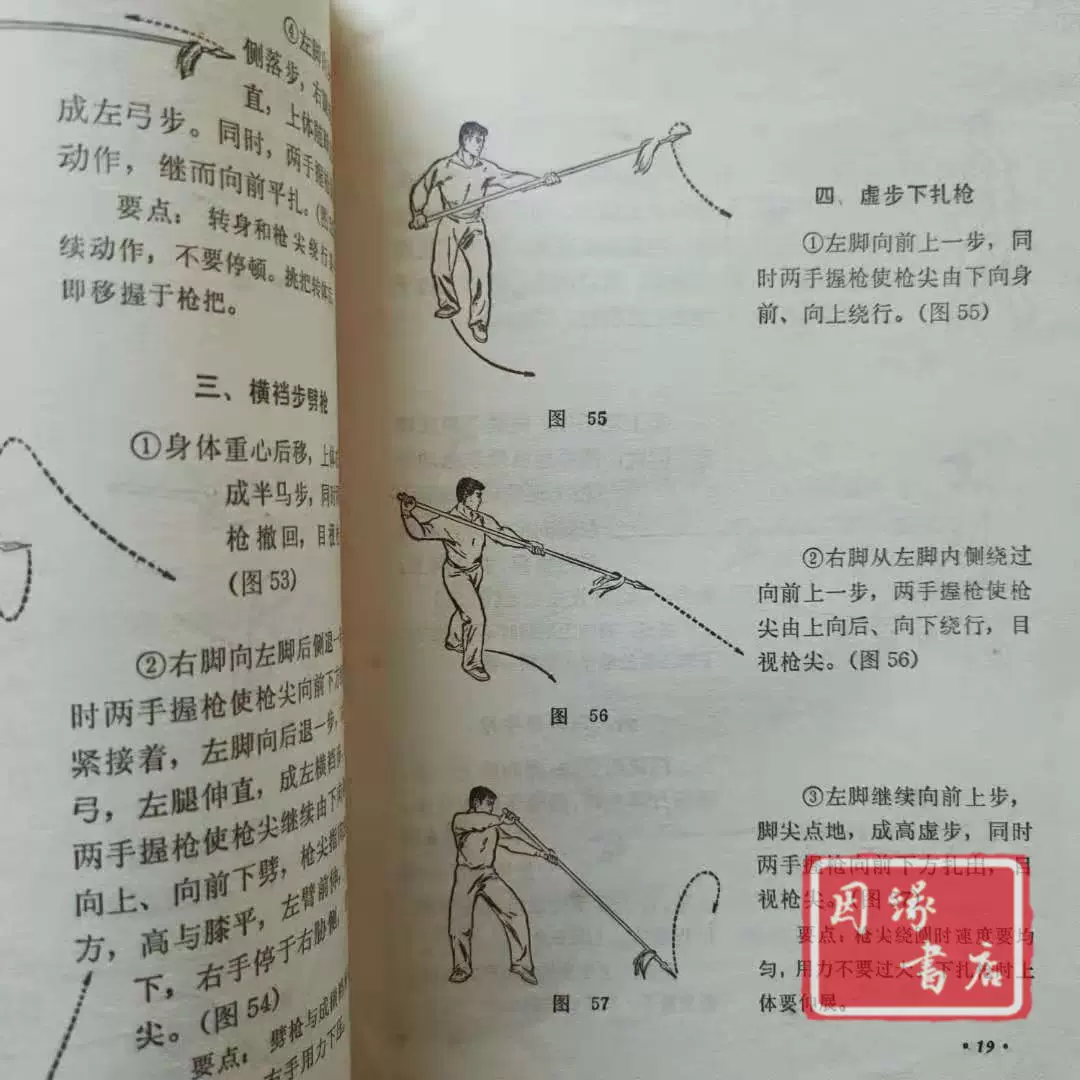 ④左脚
侧落步，右
直，上体
成左弓步。同时，两手握
动作，继而向前平扎。
要点：转身和枪尖绕行
续动作，不要停顿。挑把转体
即移握于枪把。
三、横裆步劈枪
①身体重心后移，上体
成半马步，同时
枪撤回，目视
(图53)
②右脚向左脚后侧退一
时两手握枪使枪尖向前下方
紧接着，左脚向后退一步，
弓，左腿伸直，成左横裆
两手握枪使枪尖继续由下
向上、向前下劈，枪尖指
方，高与膝平，左臂前伸，
下，右手停于右胁侧，
尖。(图54)
要点：劈枪与成横裆
右手用力下
图 55
四、虚步下扎枪
①左脚向前上一步，同
时两手握枪使枪尖由下向身
前、向上绕行。(图55)
图 56
②右脚从左脚内侧绕过
向前上一步，两手握枪使枪
尖由上向后、向下绕行，目
视枪尖。(图56)
图 57
③左脚继续向前上步，
脚尖点地，成高虚步，同时
两手握枪向前下方扎出，目
视枪尖。
要点：枪尖绕圆时速度要均
匀，用力不要过大。下扎枪时上
体要伸展。
因缘
书店
·19·